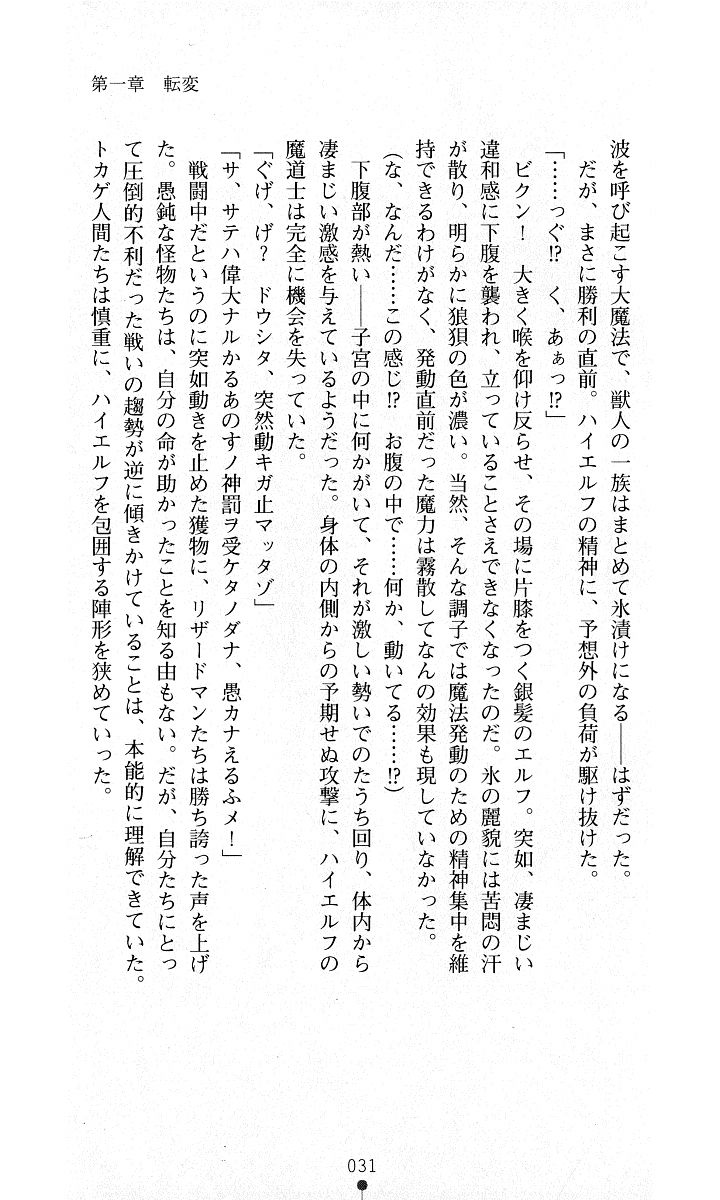 第一章　転変
波を呼び起こす大魔法で、獣人の一族はまとめて氷漬けになる――はずだった。
　だが、まさに勝利の直前。ハイエルフの精神に、予想外の負荷が駆け抜けた。
「……っぐ!?　く、あぁっ!?」
　ビクン！　大きく喉を仰け反らせ、その場に片膝をつく銀髪のエルフ。突如、凄まじい
違和感に下腹を襲われ、立っていることさえできなくなったのだ。氷の麗貌には苦悶の汗
が散り、明らかに狼狽の色が濃い。当然、そんな調子では魔法発動のための精神集中を維
持できるわけがなく、発動直前だった魔力は霧散してなんの効果も現していなかった。
（な、なんだ……この感じ!?　お腹の中で……何か、動いてる……!?）
　下腹部が熱い――子宮の中に何かがいて、それが激しい勢いでのたうち回り、体内から
凄まじい激感を与えているようだった。身体の内側からの予期せぬ攻撃に、ハイエルフの
魔道士は完全に機会を失っていた。
「ぐげ、げ？　ドウシタ、突然動キガ止マッタゾ」
「サ、サテハ偉大ナルかるあのすノ神罰ヲ受ケタノダナ、愚カナえるふメ！」
　戦闘中だというのに突如動きを止めた獲物に、リザードマンたちは勝ち誇った声を上げ
た。愚鈍な怪物たちは、自分の命が助かったことを知る由もない。だが、自分たちにとっ
て圧倒的不利だった戦いの趨勢が逆に傾きかけていることは、本能的に理解できていた。
トカゲ人間たちは慎重に、ハイエルフを包囲する陣形を狭めていった。
031